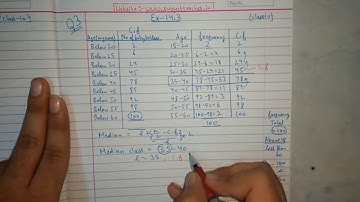 Ex-14.3
Q3
C.f
Age (in years) No. of policy holders Age frequency C.f
Below 20 2 15-20 2 2
Below 25 6 20-25 6-2=4 6
Below 30 24 25-30 24-6=18 24
Below 35 45 30-35 45-24=21 45 C.f
Below 40 78 35-40 78-45=33 78
Below 45 89 40-45 89-78=11 89
Below 50 92 45-50 92-89=3 92
Below 55 98 50-55 98-92=6 98
Below 60 100 55-60 100-98=2 100
100
Median = l +
Median class = 35-40
l = 35, C.f
frequency
Total
less than